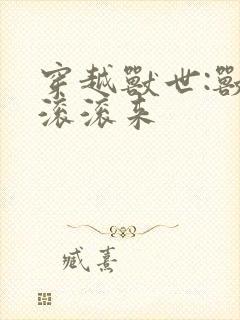 穿越獸世:獸
滚滚来
臧熹